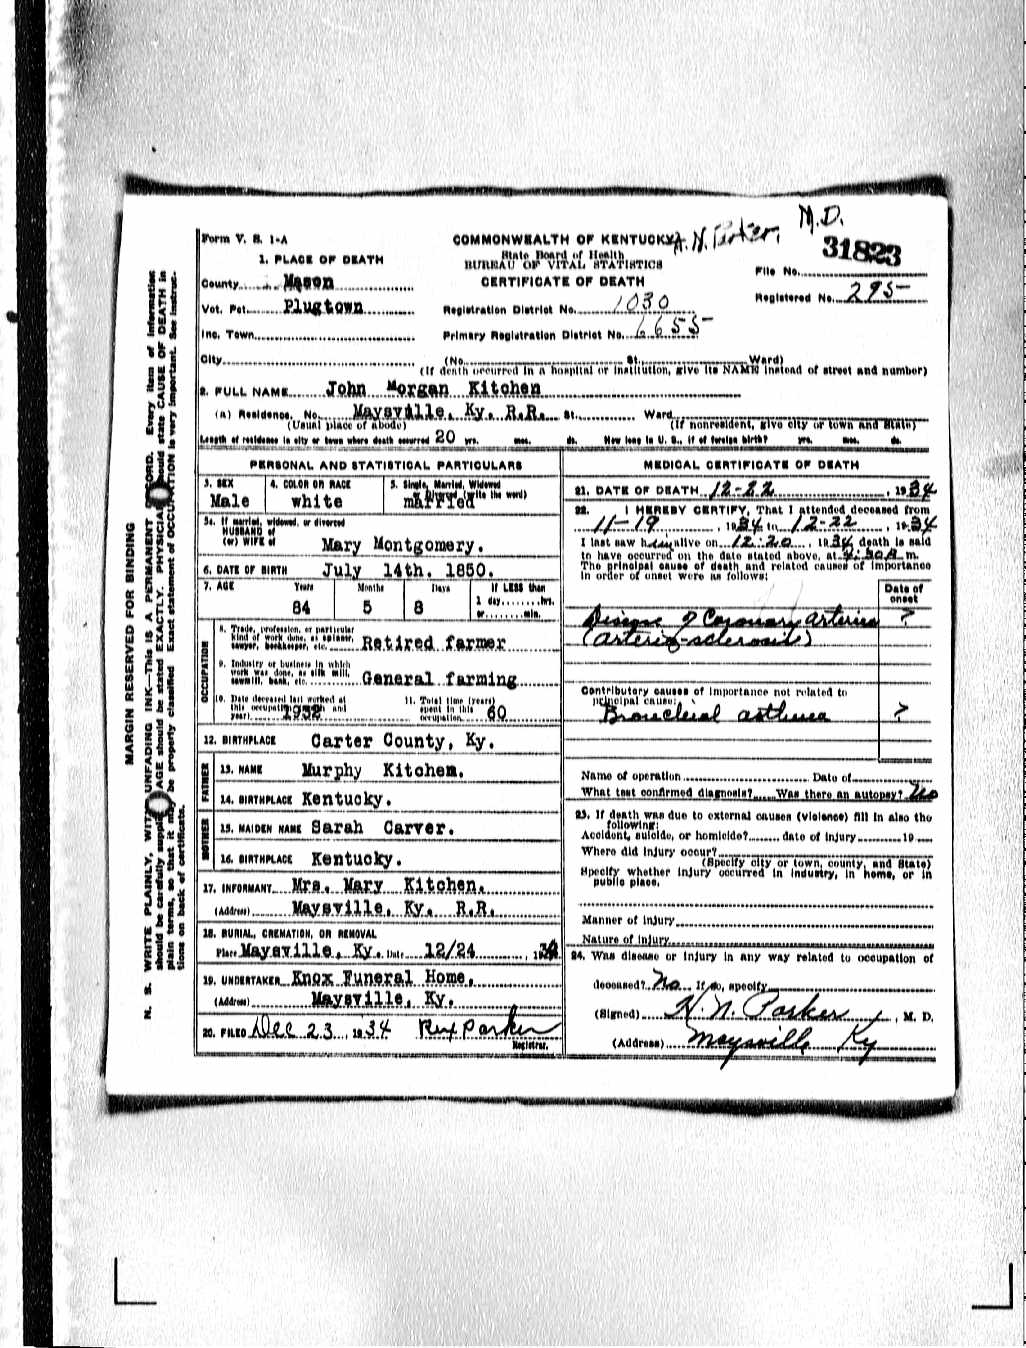 M.D.
A. N. Parker,
31823
Form V. S. 1-A
COMMONWEALTH OF KENTUCKY
State Board of Health
BUREAU OF VITAL STATISTICS
CERTIFICATE OF DEATH
File No.
Registered No. 295
1. PLACE OF DEATH
County Mason
Vot. Pct. Plugtown
Registration District No. 1030
Inc. Town
Primary Registration District No. 6655
City (No. St. Ward)
(If death occurred in a hospital or institution, give its NAME instead of street and number)
2. FULL NAME John Morgan Kitchen
(a) Residence. No. Maysville, Ky. R.R. St. Ward
(Usual place of abode) (If nonresident, give city or town and State)
Length of residence in city or town where death occurred 20 yrs. mos. ds. How long in U. S., if of foreign birth? yrs. mos. ds.
PERSONAL AND STATISTICAL PARTICULARS
3. SEX Male
4. COLOR OR RACE white
5. Single, Married, Widowed
or Divorced (write the word)
married
5a. If married, widowed, or divorced
HUSBAND of
(or) WIFE of Mary Montgomery.
6. DATE OF BIRTH July 14th. 1850.
7. AGE Years Months Days If LESS than
84 5 8 1 day, hrs.
or min.
OCCUPATION
8. Trade, profession, or particular
kind of work done, as spinner,
sawyer, bookkeeper, etc. Retired farmer
9. Industry or business in which
work was done, as silk mill,
sawmill, bank, etc. General farming
10. Date deceased last worked at
this occupation (month and
year) 1932
11. Total time (years)
spent in this
occupation 60
12. BIRTHPLACE Carter County, Ky.
FATHER
13. NAME Murphy Kitchen.
14. BIRTHPLACE Kentucky.
MOTHER
15. MAIDEN NAME Sarah Carver.
16. BIRTHPLACE Kentucky.
17. INFORMANT Mrs. Mary Kitchen.
(Address) Maysville, Ky. R.R.
18. BURIAL, CREMATION, OR REMOVAL
Place Maysville, Ky. Date 12/24, 1934
19. UNDERTAKER Knox Funeral Home,
(Address) Maysville, Ky.
20. FILED Dec 23, 1934 Rex Parker
Registrar.
MEDICAL CERTIFICATE OF DEATH
21. DATE OF DEATH 12-22, 1934
22. I HEREBY CERTIFY, That I attended deceased from
11-19, 1934 to 12-22, 1934
I last saw him alive on 12-20, 1934 death is said
to have occurred on the date stated above, at 4:30 A m.
The principal cause of death and related causes of importance
in order of onset were as follows:
Date of
onset
Disease of Coronary arteries ?
(arterio-sclerosis)
Contributory causes of importance not related to
principal cause:
Bronchial asthma ?
Name of operation Date of
What test confirmed diagnosis? Was there an autopsy? No
23. If death was due to external causes (violence) fill in also the
following:
Accident, suicide, or homicide? date of injury 19
Where did injury occur?
(Specify city or town, county, and State)
Specify whether injury occurred in industry, in home, or in
public place.
Manner of injury
Nature of injury
24. Was disease or injury in any way related to occupation of
deceased? No. If so, specify
(Signed) H. N. Parker, M. D.
(Address) Maysville Ky
MARGIN RESERVED FOR BINDING
N. B. WRITE PLAINLY, WITH UNFADING INK—THIS IS A PERMANENT RECORD. Every item of information
should be carefully supplied. AGE should be stated EXACTLY. PHYSICIANS should state CAUSE OF DEATH in
plain terms, so that it may be properly classified. Exact statement of OCCUPATION is very important. See instruc-
tions on back of certificate.